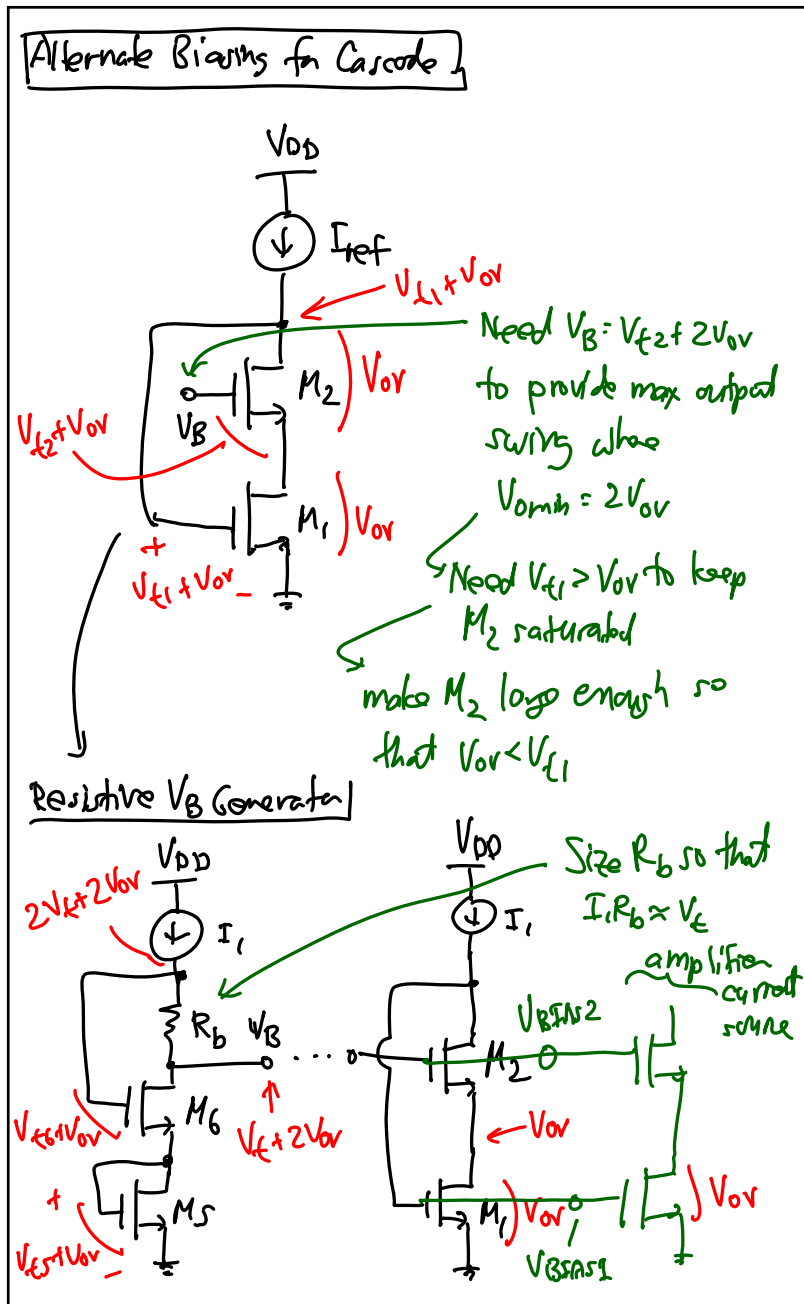 Alternate Biasing for Cascode
VDD
Iref
Vt1+Vov
Need VB = Vt2+2Vov
to provide max output
swing where
Vomin = 2Vov
M2
Vov
VB
Vt2+Vov
M1
Vov
+
Vt1+Vov
-
Need Vt1 > Vov to keep
M2 saturated
make M2 large enough so
that Vov < Vt1
Resistive VB Generator
VDD
2Vt+2Vov
I1
Rb
VB
....
M6
Vt6+Vov
Vt+2Vov
+
M5
Vt5+Vov
-
VDD
I1
Size Rb so that
I1Rb ≈ Vt
amplifier
current
source
VBIAS2
M2
Vov
M1
Vov
VBIAS1
Vov